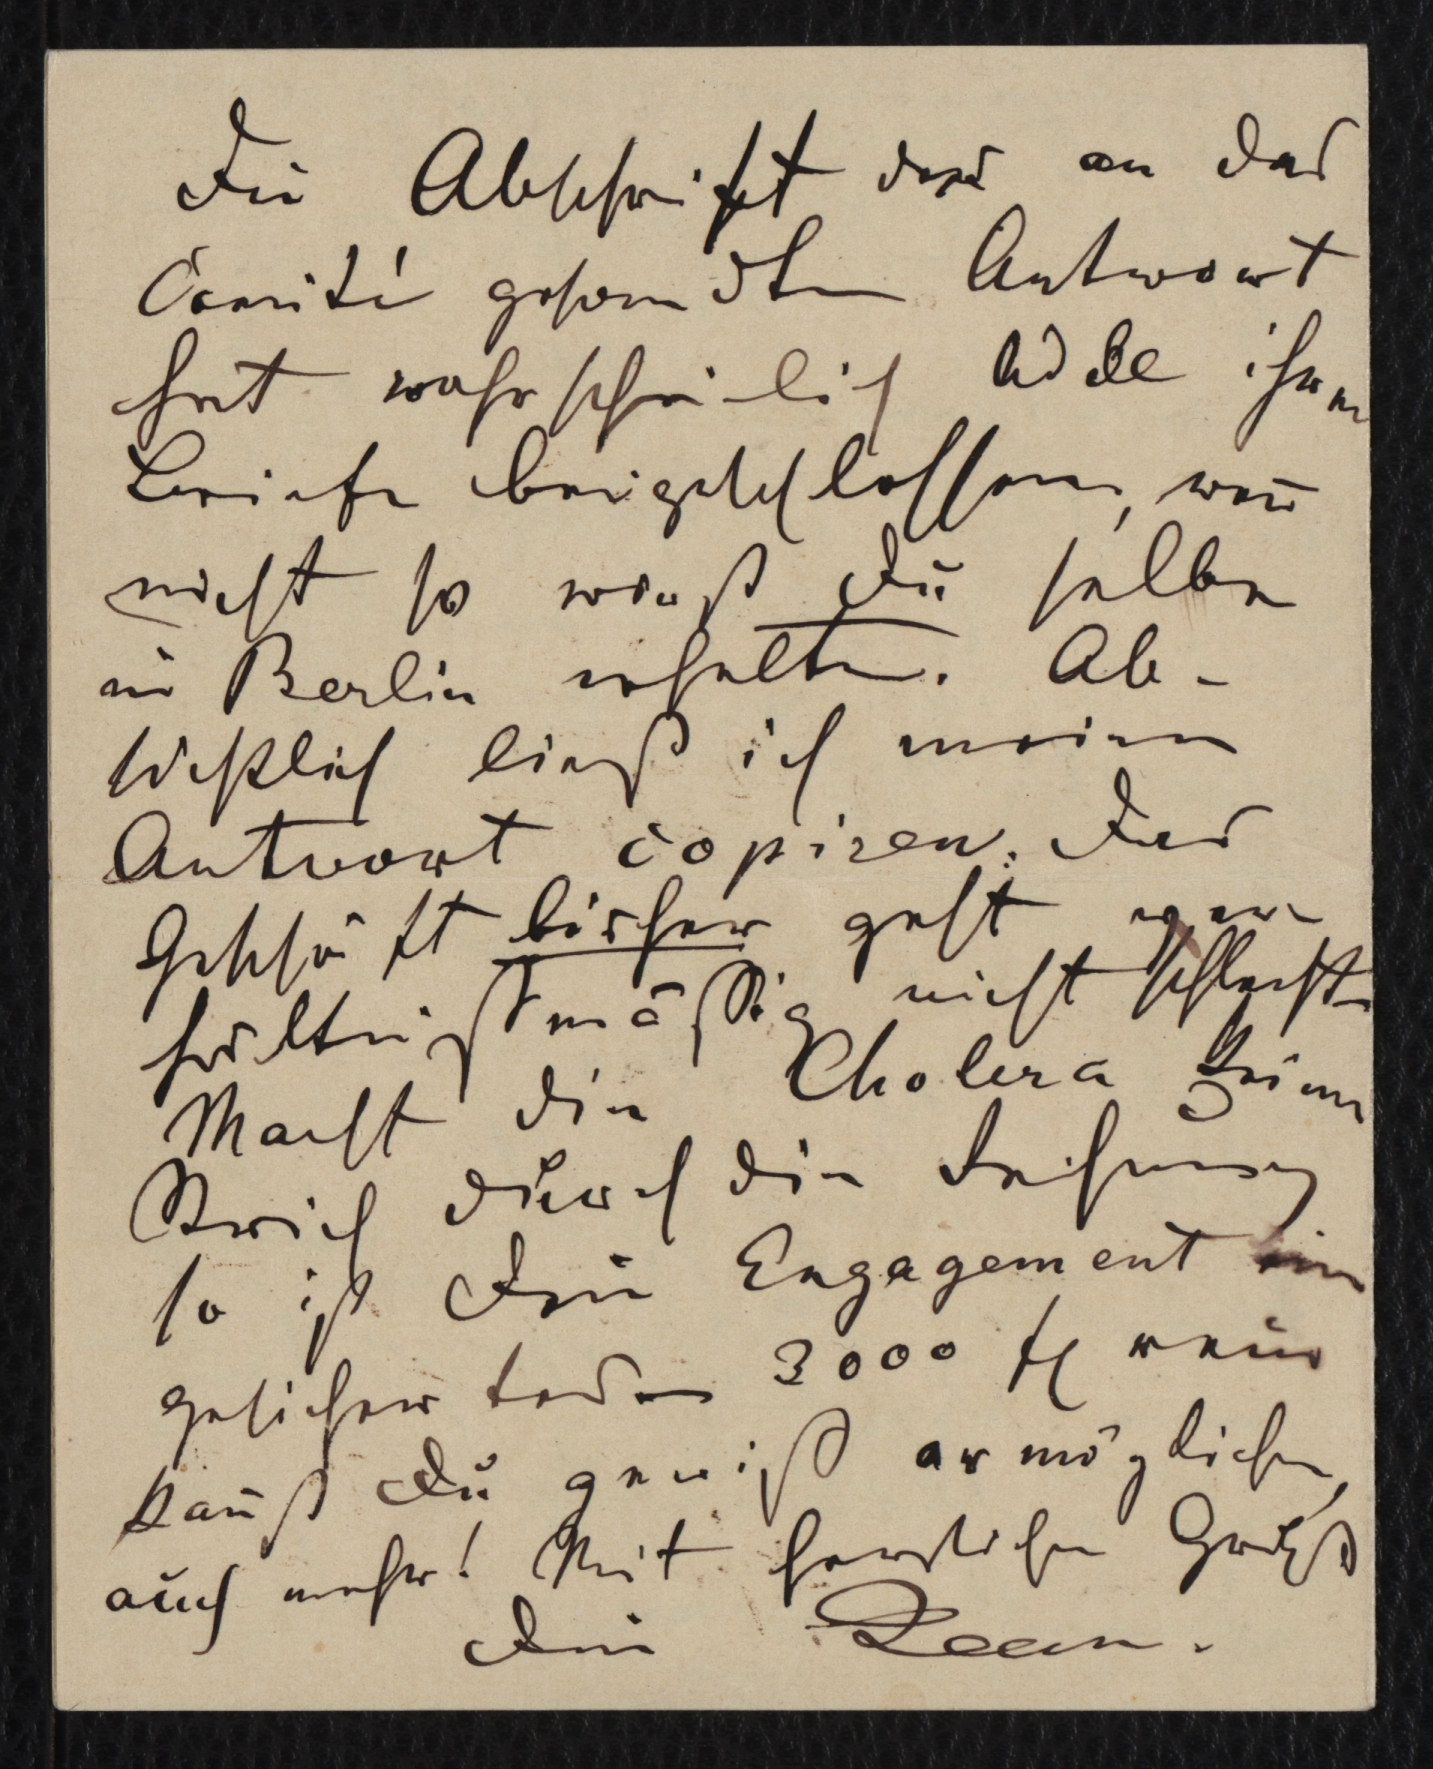 Die Abschrift der an das
Comité gesandten Antwort
hat wahrscheinlich Adele ihrem
Briefe beigeschlossen, wenn
nicht so wirst Du selbe
in Berlin erhalten. Ab-
sichtlich ließ ich meine
Antwort copiren. Das
Geschäft bisher geht ver-
hältnißmäßig nicht schlecht.
Macht die Cholera keinen
Strich durch die Rechnung
so ist Dein Engagement ein
gesichertes 3000 fl
kannst Du gewiß ermöglichen,
auch mehr! Mit herzlichen Gruß
Dein